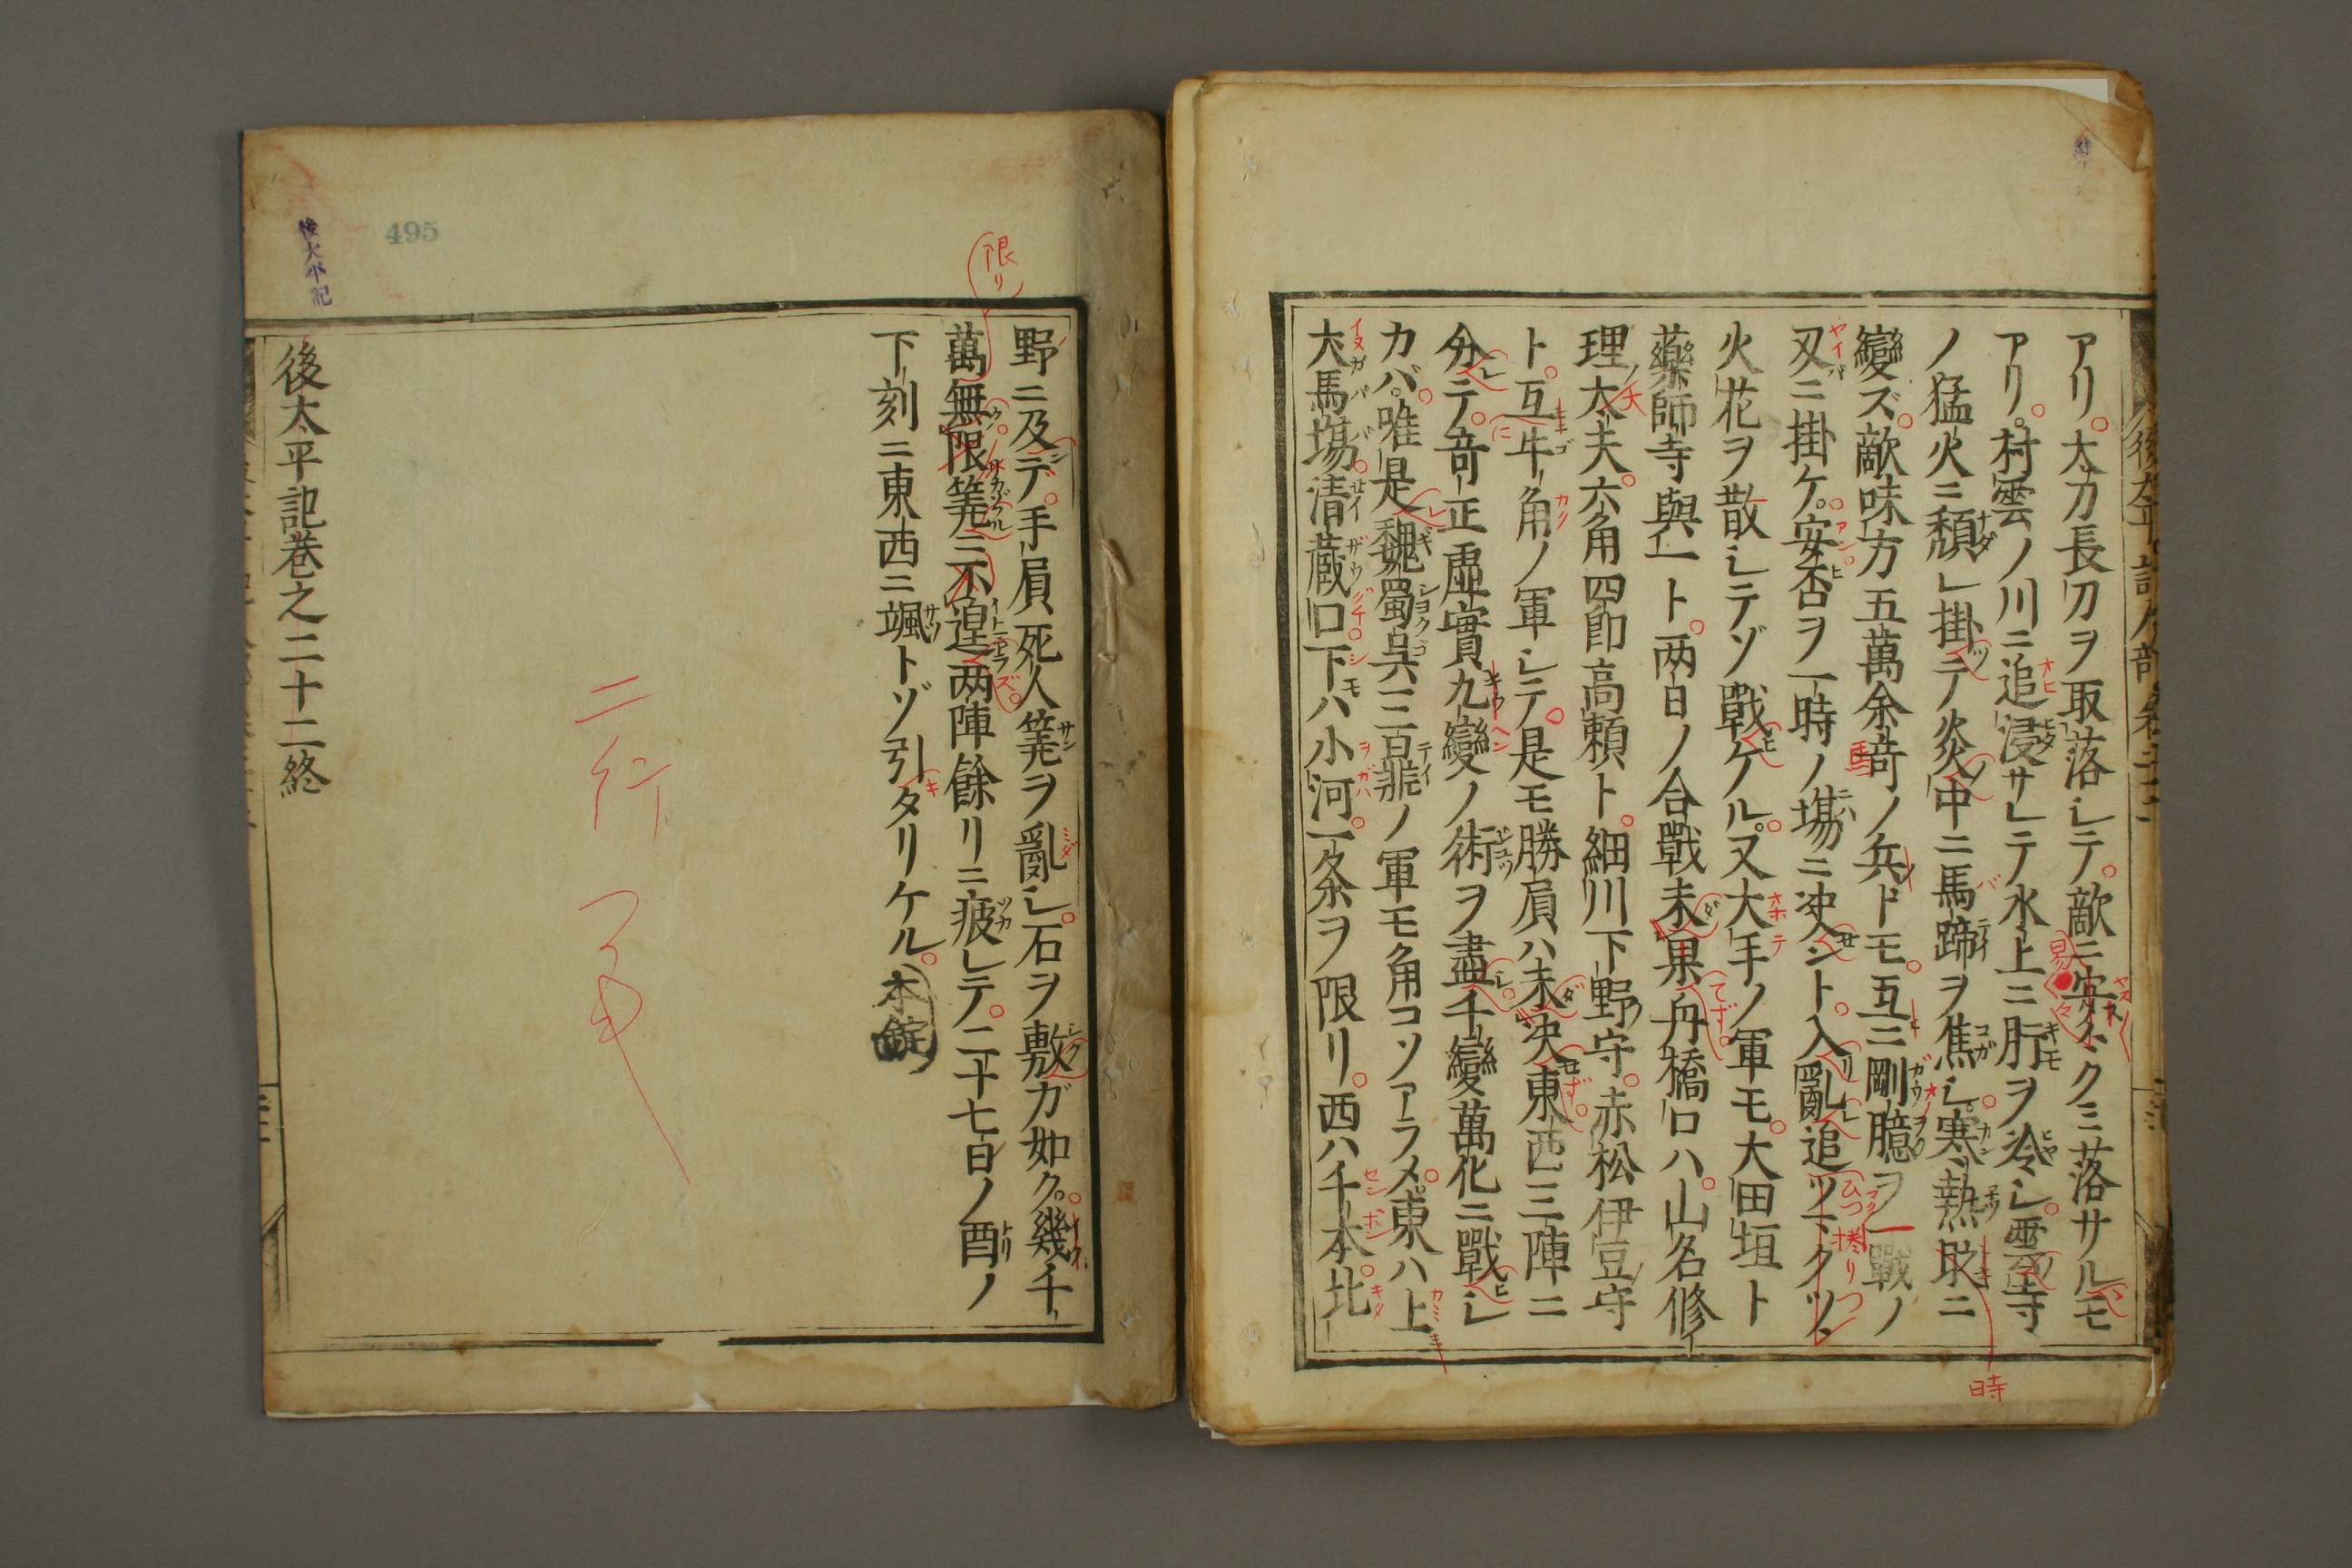 アリ。大力長刀ヲ取落シテ。敵ニ安々クミ落サルヽモ
アリ。村雲ノ川ニ追浸サレテ水上ニ肝ヲ冷シ。霊寺
ノ猛火ニ頽レ掛テ炎中ニ馬蹄ヲ焦シ。寒熱取ニ
變ズ。敵味方五萬余竒ノ兵ドモ。互ニ剛臆ヲ一戰ノ
刃ニ掛ケ。安否ヲ一時ノ塲ニ决シト。入亂追ツマクツヽ
火花ヲ散シテゾ戰ケル。又大手ノ軍モ。大田垣ト
藥師寺與一ト。两日ノ合戰未果舟橋口ハ。山名修
理大夫。六角四郎高頼ト。細川下野守。赤松伊豆守
ト。互牛角ノ軍シテ。是モ勝屓ハ未决東西三陣ニ
分テ。竒正虚實九變ノ術ヲ盡千變萬化ニ戰シ
カバ。唯是魏蜀呉三ノ軍モ角コソアラメ。東ハ上
犬馬塲。清藏口。下ハ小河。一条ヲ限リ。西ハ千本。北
野ニ及デ。手屓死人筭ヲ亂シ。石ヲ敷ガ如ク。幾千
萬無限筭ニ不遑。两陣餘リニ疲レテ。二十七日ノ酉ノ
下刻ニ東西ニ颯トゾ引タリケル。
後太平記巻之二十二終
後太平記
495
限り
二行
時
易
馬